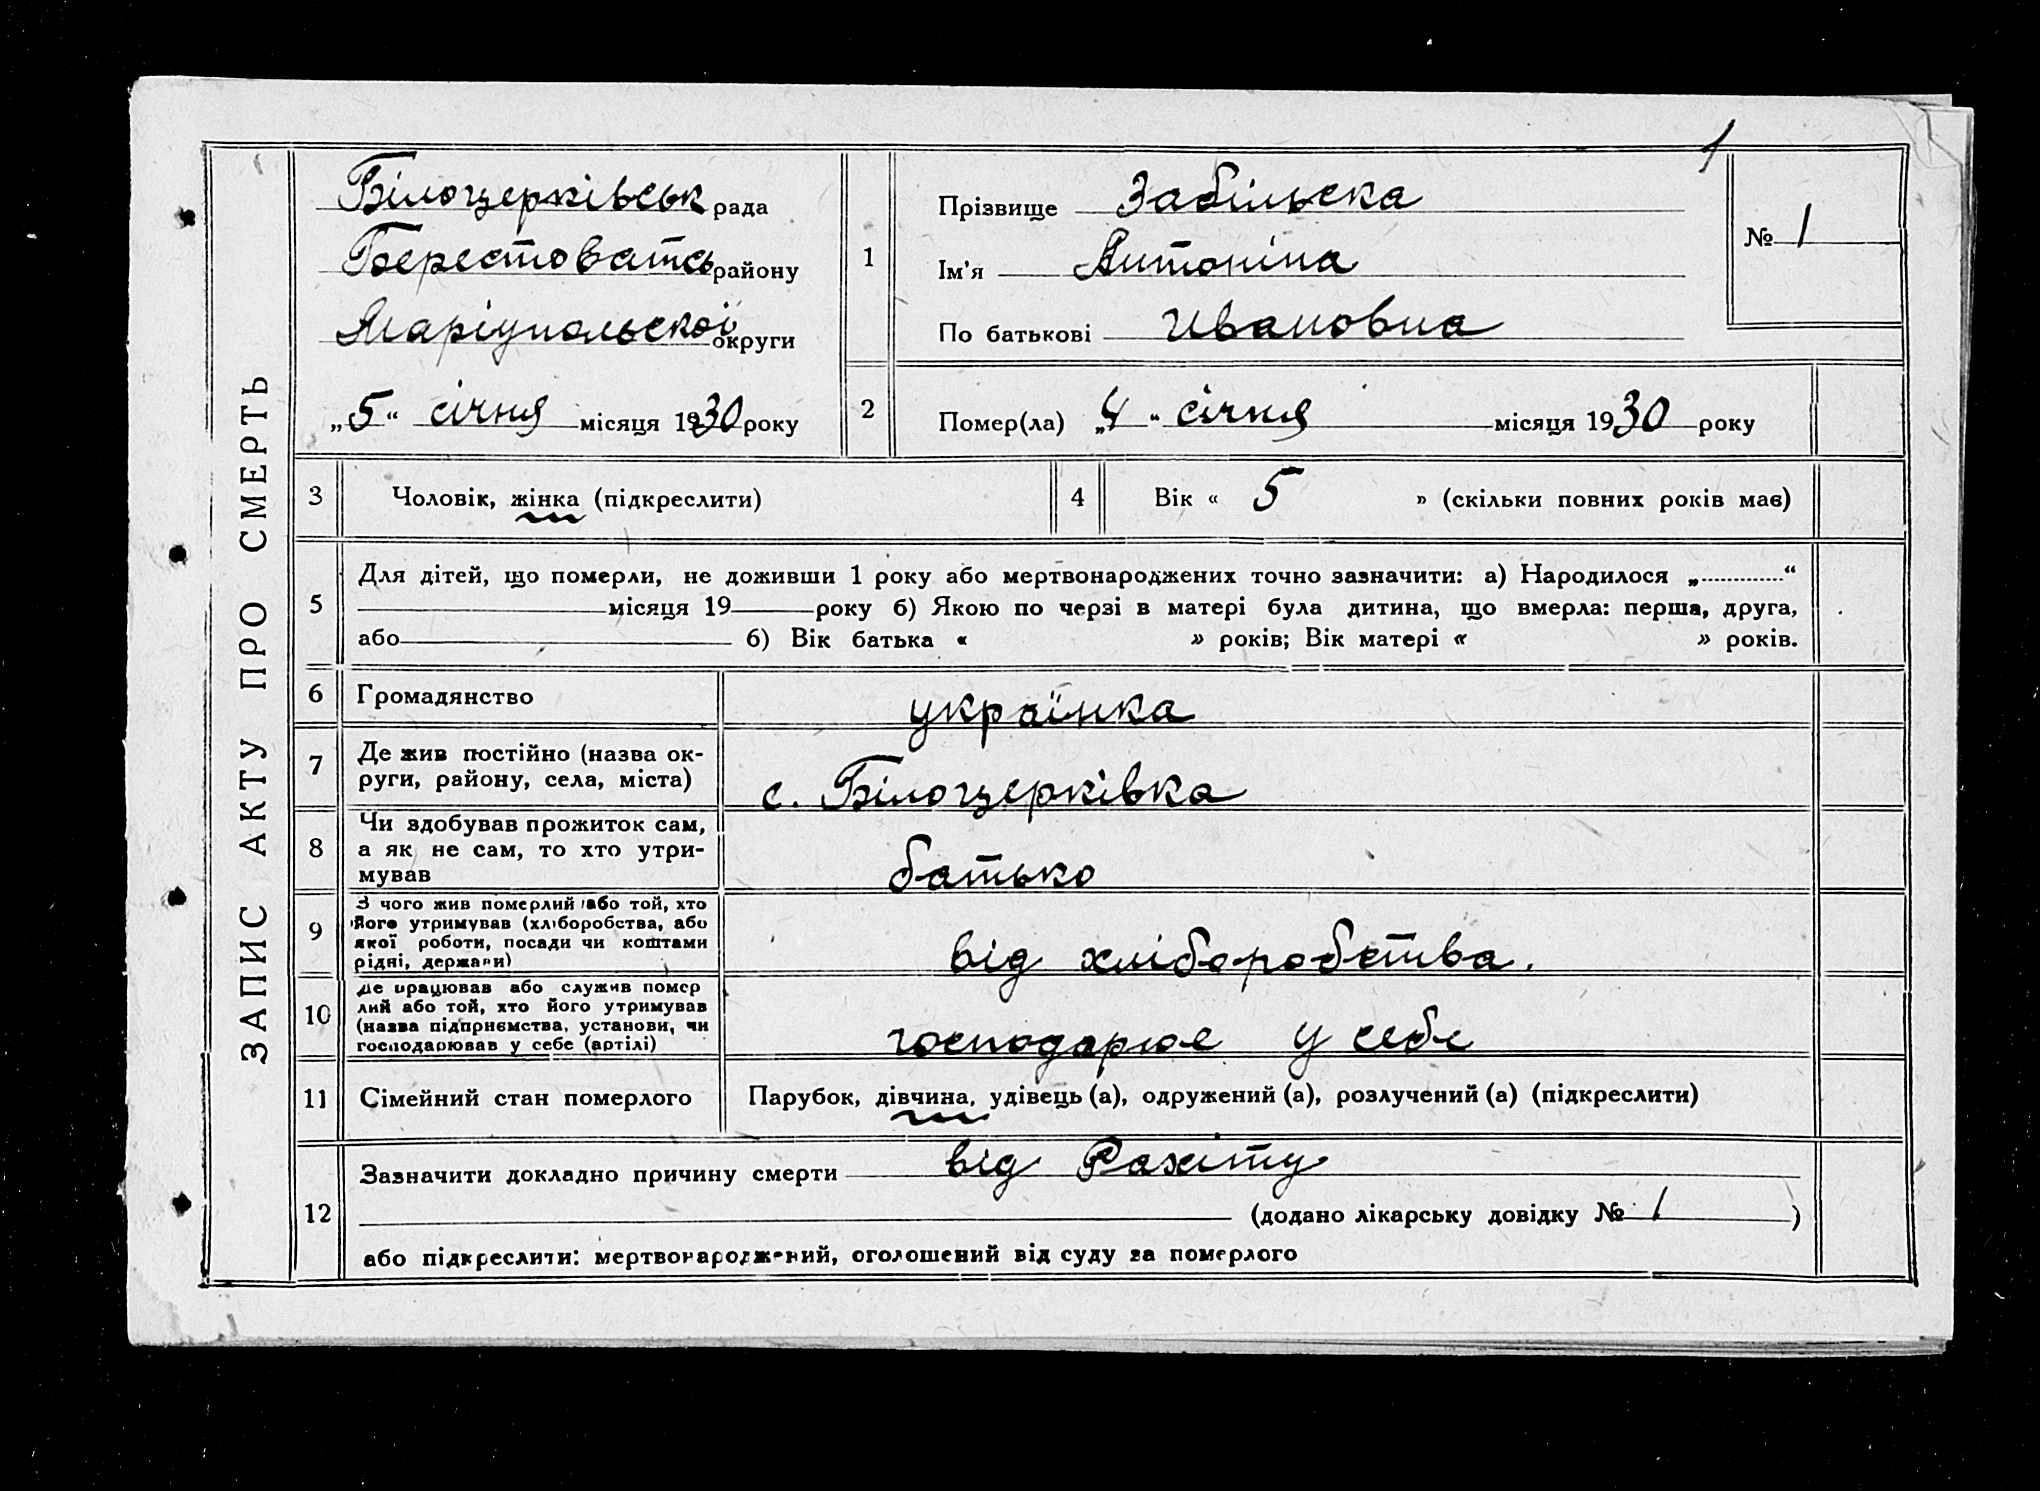 1
ЗАПИС АКТУ ПРО СМЕРТЬ
Білоцерківськ рада
Берестоватсь району
Маріупольської округи
„5“ січня місяця 1930 року
1
Прізвище Забільска
Ім'я Антоніна
По батькові Ивановна
№ 1
2
Помер(ла) „4“ січня місяця 1930 року
3 Чоловік, жінка (підкреслити)
4 Вік « 5 » (скільки повних років має)
5
Для дітей, що померли, не доживши 1 року або мертвонароджених точно зазначити: а) Народилося „.............“
місяця 19 року б) Якою по черзі в матері була дитина, що вмерла: перша, друга,
або б) Вік батька « » років; Вік матері « » років.
6 Громадянство українка
7
Де жив постійно (назва ок-
руги, району, села, міста)
с. Білоцерківка
8
Чи здобував прожиток сам,
а як не сам, то хто утри-
мував
батько
9
З чого жив померлий або той, хто
його утримував (хліборобства, або
якої роботи, посади чи коштами
рідні, держави)
від хліборобства.
10
Де працював або служив помер
лий або той, хто його утримував
(назва підприємства, установи, чи
господарював у себе (артілі)
господарює у себе
11 Сімейний стан померлого Парубок, дівчина, удівець (а), одружений (а), розлучений (а) (підкреслити)
12
Зазначити докладно причину смерти від Рахіту
(додано лікарську довідку № 1 )
або підкреслити: мертвонароджений, оголошений від суду за померлого